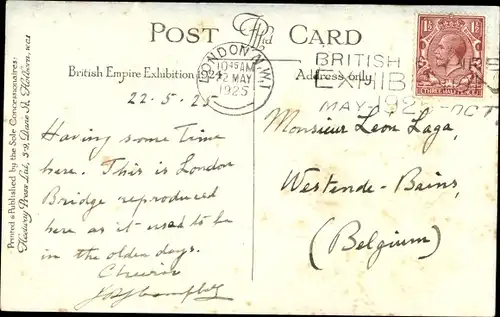 POST CARD
British Empire Exhibition 1924
Address only
LONDON. N.W.1
10 45 AM
22 MAY
1925
BRITISH
EXHIBI
MAY-1925-OCT
THREE HALF
22-5-25
Having some time
here. This is London
Bridge reproduced
here as it used to be
in the olden days.
Cheerio
Monsieur Léon Laga,
Westende-Bains,
(Belgium)
Printed & Published by the Sole Concessionaires:
Fleetway Press Ltd., 3-9, Dane St. Holborn, WC1